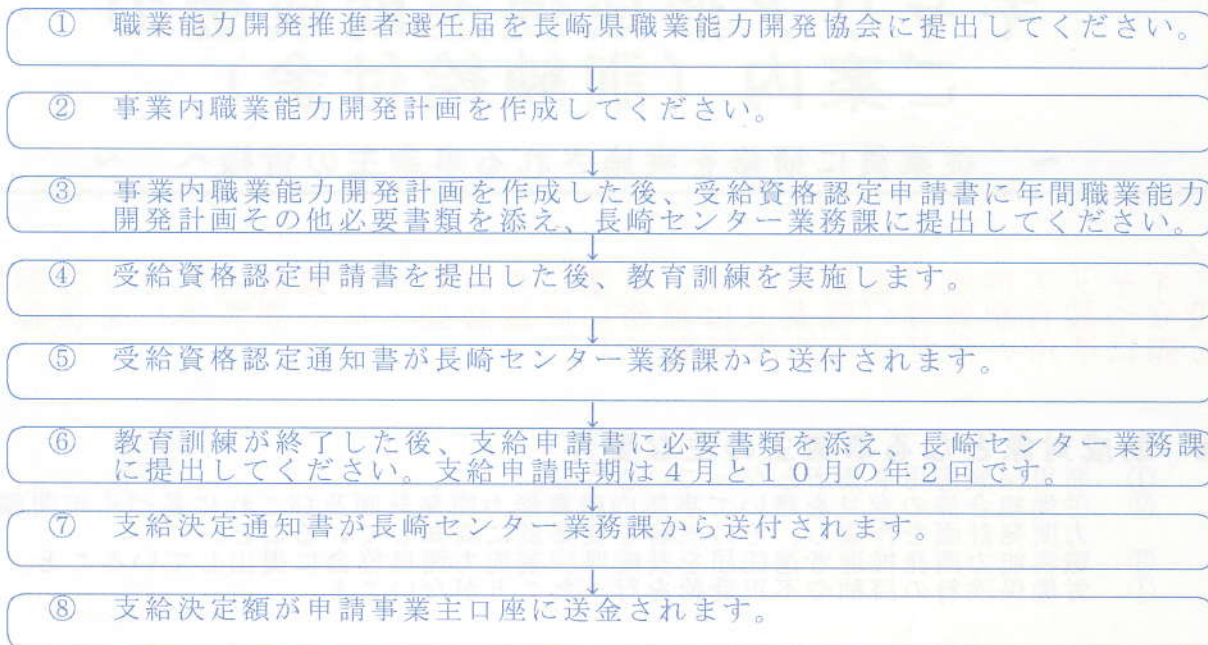 ① 職業能力開発推進者選任届を長崎県職業能力開発協会に提出してください。
↓
② 事業内職業能力開発計画を作成してください。
↓
③ 事業内職業能力開発計画を作成した後、受給資格認定申請書に年間職業能力
開発計画その他必要書類を添え、長崎センター業務課に提出してください。
↓
④ 受給資格認定申請書を提出した後、教育訓練を実施します。
↓
⑤ 受給資格認定通知書が長崎センター業務課から送付されます。
↓
⑥ 教育訓練が終了した後、支給申請書に必要書類を添え、長崎センター業務課
に提出してください。支給申請時期は4月と10月の年2回です。
↓
⑦ 支給決定通知書が長崎センター業務課から送付されます。
↓
⑧ 支給決定額が申請事業主口座に送金されます。